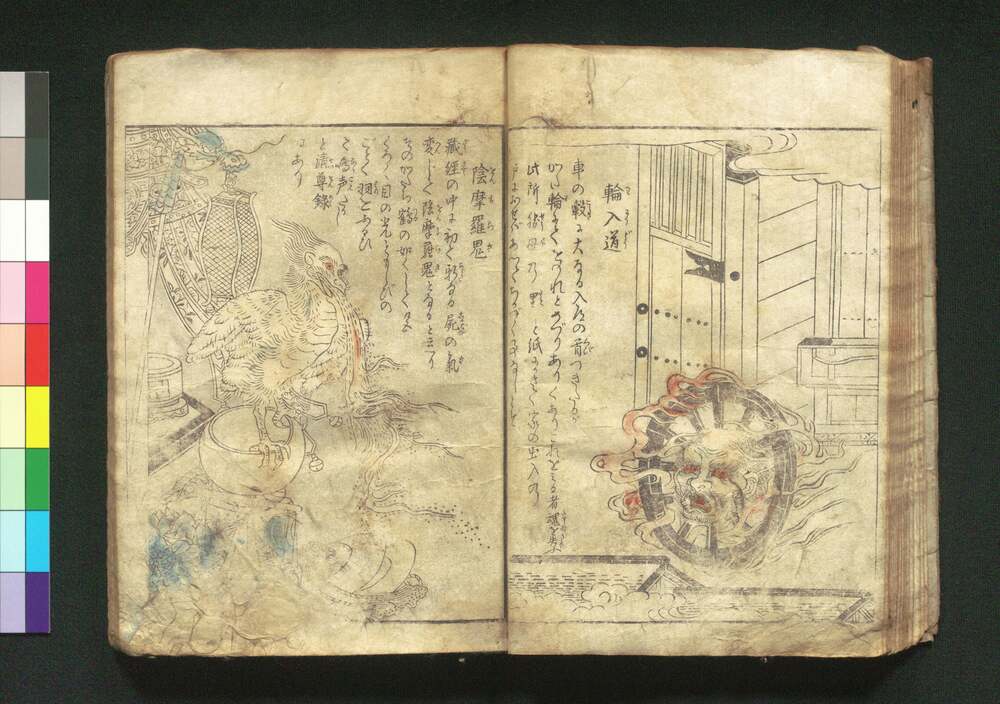 輪入道
わにうだう
車の轂に大なる入道の首つきたるが
かた輪にてをのれとめぐりありくありこれをみる者魂を失ふ
此所勝母の里と紙にかきて家の出入の
戸におせばあへてちかづく事なしとぞ
陰摩羅鬼
おんもらき
蔵経の中に初て新なる屍の気
変じて陰摩羅鬼となると云へり
そのかたち鶴の如くして色
くろく目の光ともしびの
ごとく羽をふるひ
て鳴声たかし
と清尊録
にあり